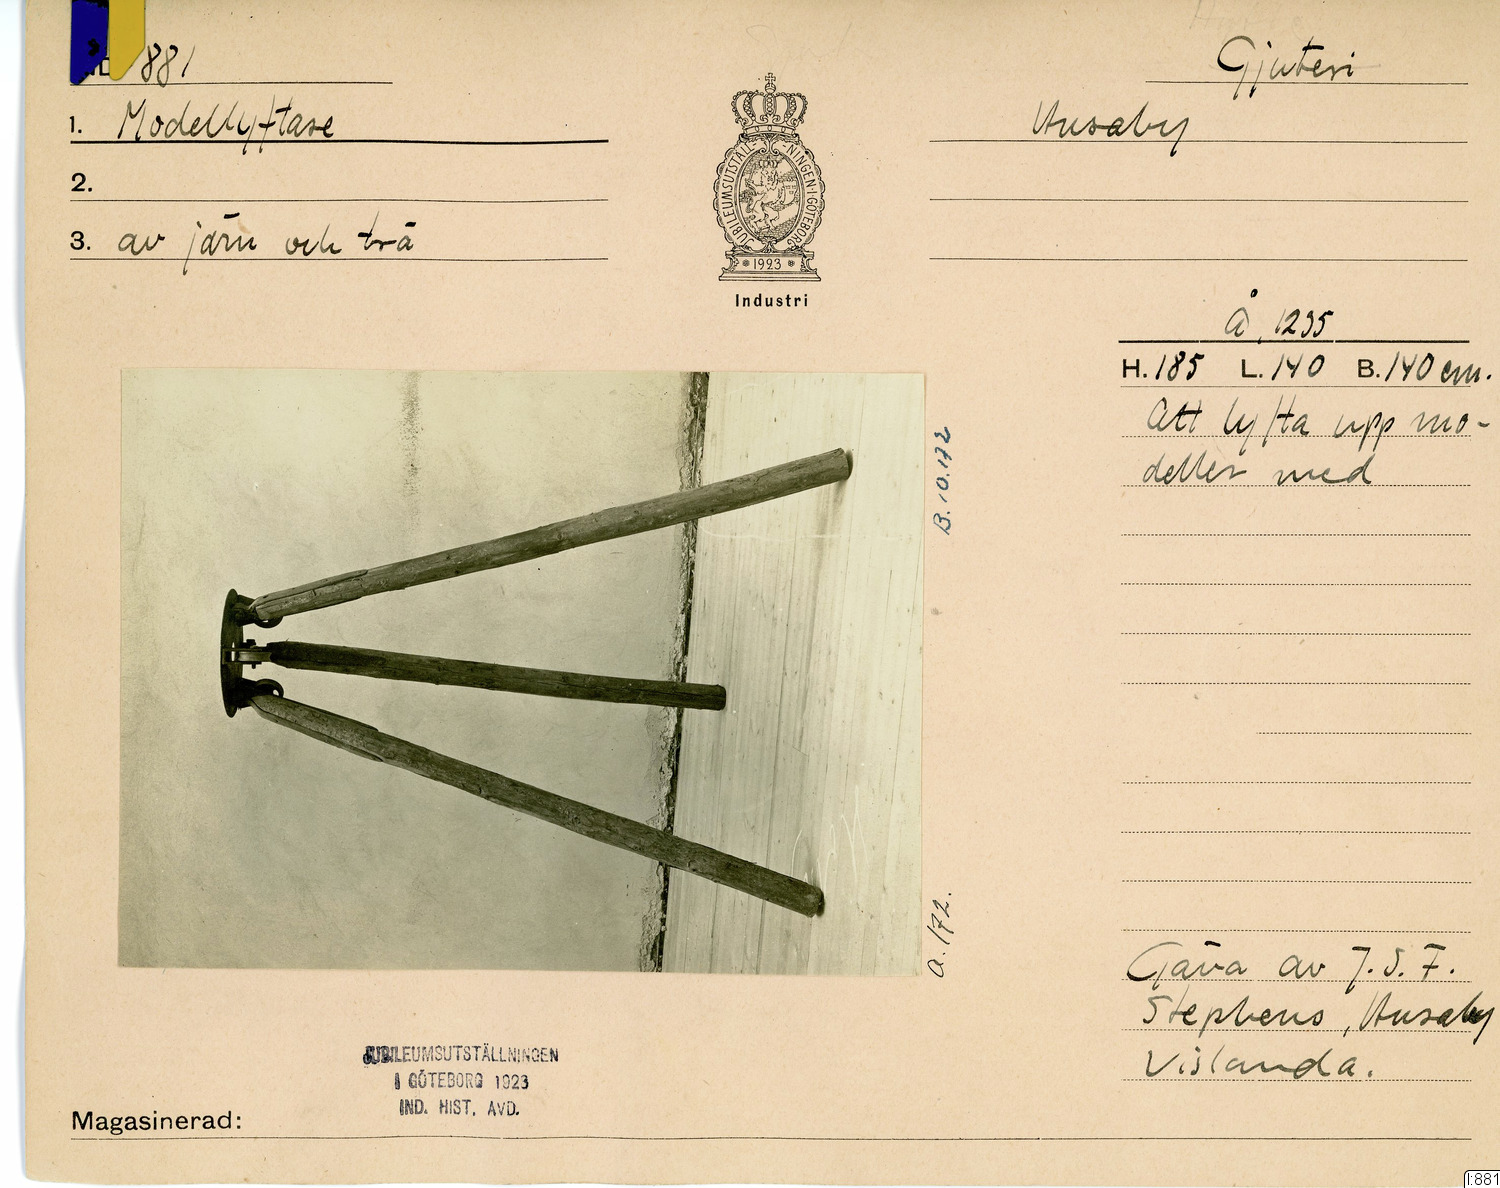 881
Gjuteri
1. Modellyftare
Husaby
JUBILEUMSUTSTÄLLNINGEN I GÖTEBORG
1923
Industri
2.
3. av järn och trä
Å, 1235
H. 185 L. 140 B. 140 cm.
Att lyfta upp mo-
deller med
B. 10.172
a. 172.
Gåva av J. S. F.
Stephens, Husaby
Vislanda.
JUBILEUMSUTSTÄLLNINGEN
I GÖTEBORG 1923
IND. HIST. AVD.
Magasinerad:
I:881